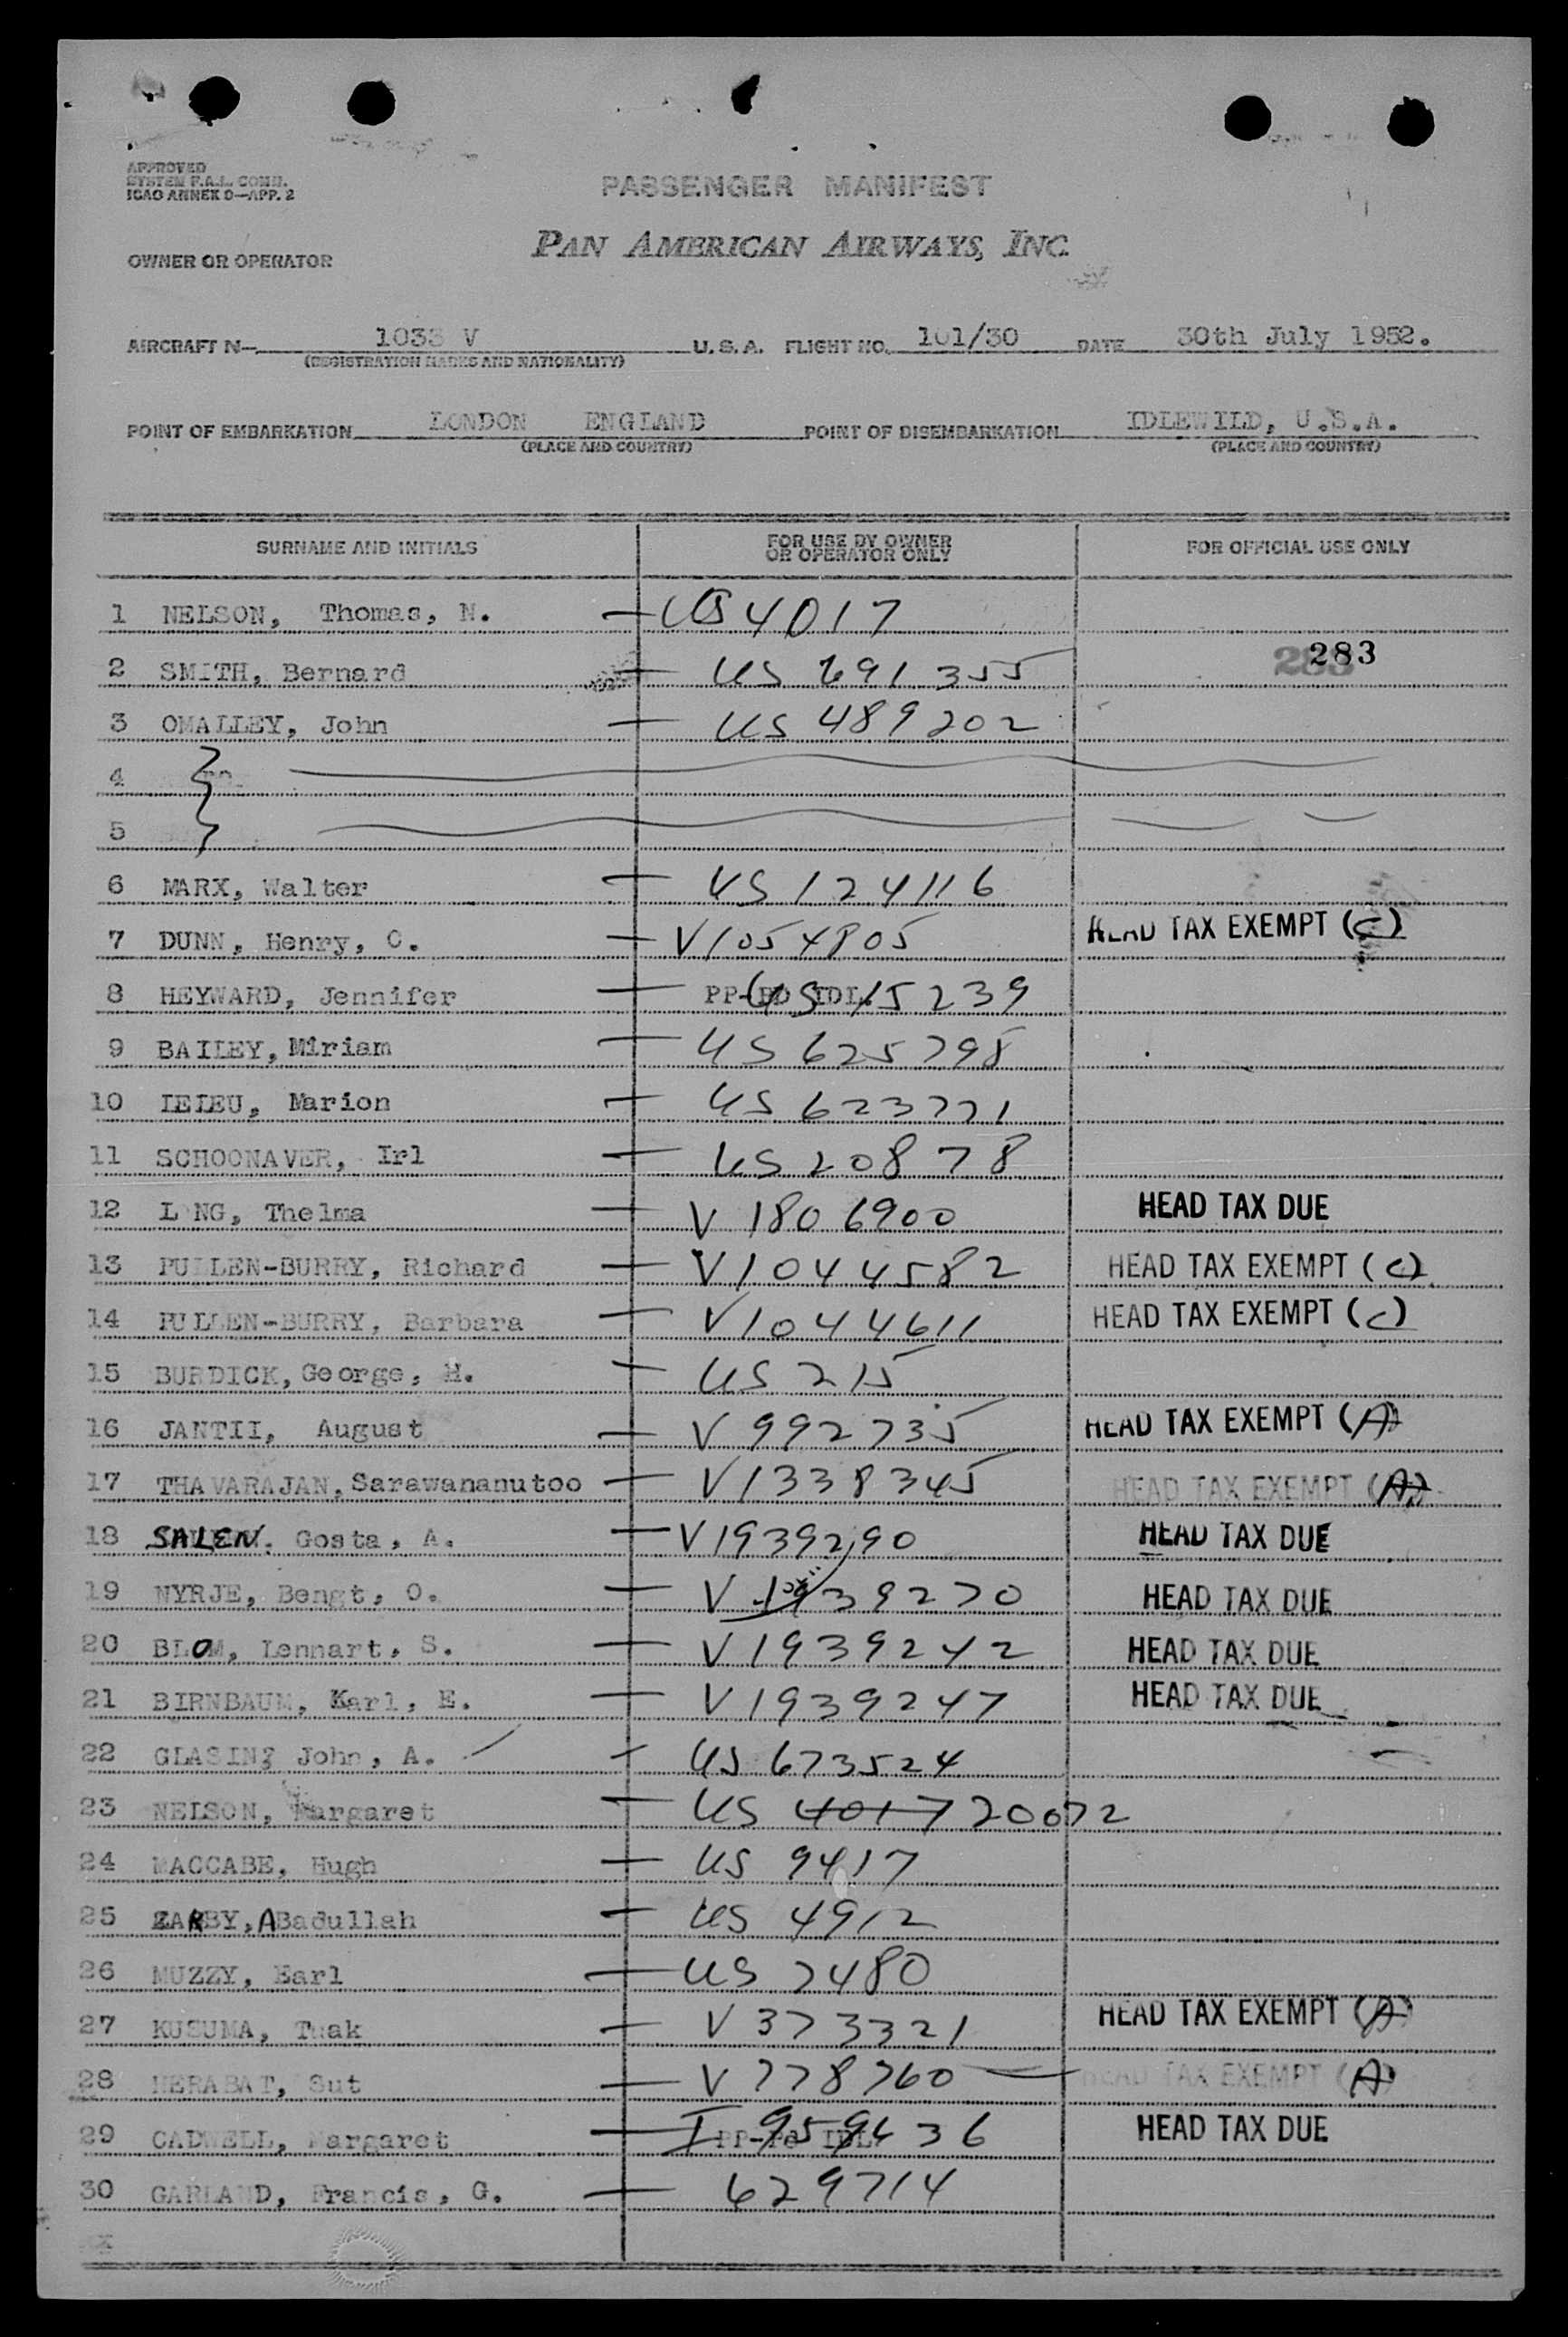 APPROVED
SYSTEM F.A.L. COMM.
ICAO ANNEX 9—APP. 2
PASSENGER MANIFEST
OWNER OR OPERATOR PAN AMERICAN AIRWAYS, INC.
AIRCRAFT N— 1033 V U.S.A. FLIGHT NO. 101/30 DATE 30th July 1952.
(REGISTRATION MARKS AND NATIONALITY)
POINT OF EMBARKATION LONDON ENGLAND POINT OF DISEMBARKATION IDLEWILD, U.S.A.
(PLACE AND COUNTRY) (PLACE AND COUNTRY)
SURNAME AND INITIALS FOR USE BY OWNER OR OPERATOR ONLY FOR OFFICIAL USE ONLY
1 NELSON, Thomas, N. — US 4017
2 SMITH, Bernard — US 691355 283
3 OMALLEY, John — US 489202
4
5
6 MARX, Walter — US 124116
7 DUNN, Henry, C. — V1054805 HEAD TAX EXEMPT (C)
8 HEYWARD, Jennifer — US 15239
9 BAILEY, Miriam — US 625798
10 LELEU, Marion — US 623771
11 SCHOONAVER, Irl — US 20878
12 LONG, Thelma — V 1806900 HEAD TAX DUE
13 PULLEN-BURRY, Richard — V1044582 HEAD TAX EXEMPT (C)
14 PULLEN-BURRY, Barbara — V1044611 HEAD TAX EXEMPT (C)
15 BURDICK, George, H. — US 215
16 JANTII, August — V 992735 HEAD TAX EXEMPT (A)
17 THAVARAJAN, Sarawananutoo — V1338345 HEAD TAX EXEMPT (A)
18 SALEN, Gosta, A. — V1939290 HEAD TAX DUE
19 NYRJE, Bengt, O. — V 1939270 HEAD TAX DUE
20 BLOM, Lennart, S. — V1939242 HEAD TAX DUE
21 BIRNBAUM, Karl, E. — V1939247 HEAD TAX DUE
22 GLASING John, A. — US 673524
23 NELSON, Margaret — US 4017 20072
24 MACCABE, Hugh — US 9417
25 ZARBY, ABadullah — US 4912
26 MUZZY, Earl — US 7480
27 KUSUMA, Tuak — V 373321 HEAD TAX EXEMPT (A)
28 HERABAT, Sut — V 778760 — HEAD TAX EXEMPT (A)
29 CADWELL, Margaret — I 959636 HEAD TAX DUE
30 GARLAND, Francis, G. — 629714